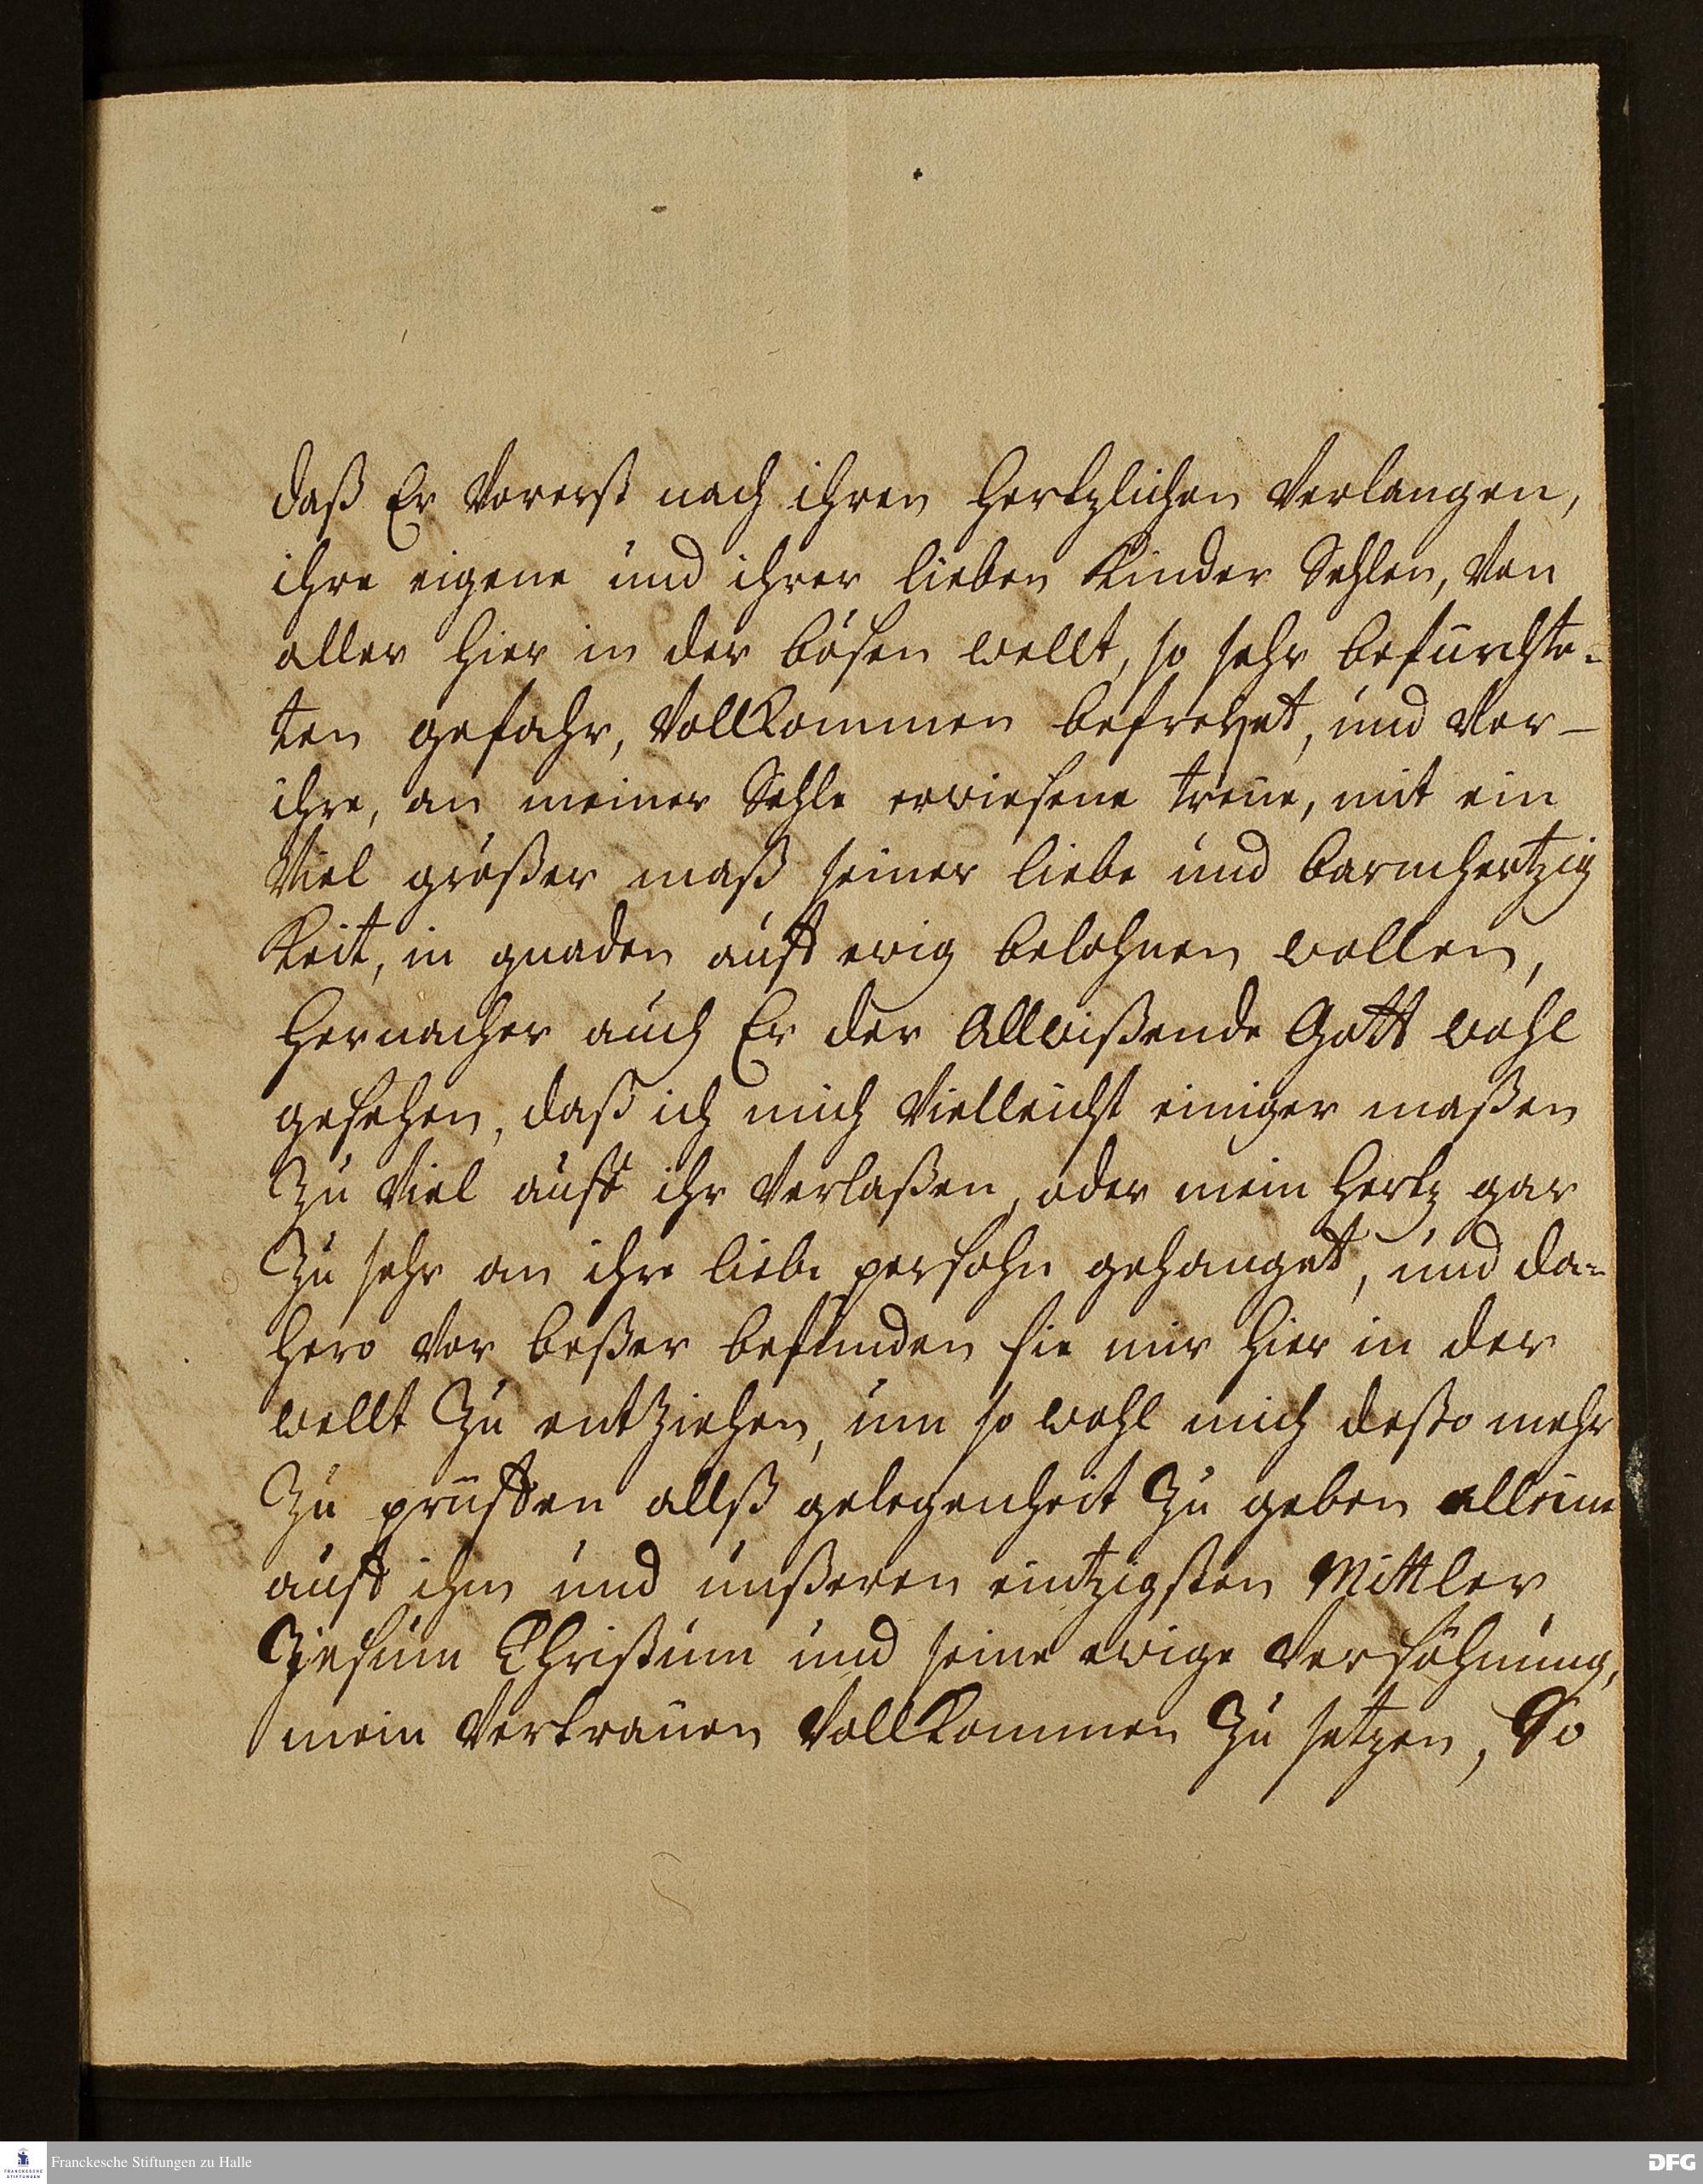 daß Er Vorerst nach ihren Hertzlichen Verlangen,
ihre eigene und ihrer lieben Kinder Sehlen, Von
aller hier in der bösen wellt, so sehr befürchte-
ten gefahr, Vollkommen befreyet, und Vor-
ihre, an meiner Sehle erwiesene treüe, mit ein
Viel größer maß seiner liebe und barmhertzig
Keit, in gnaden auff ewig belohnen wollen,
Hernacher auch Er der Allwißende Gott wohl
gesehen, daß ich mich Vielleicht einiger maßen
Zu Viel auff ihr Verlaßen, oder mein Hertz gar
Zu sehr an ihre liebe persohn gehanget, und da-
hero Vor beßer befunden sie mir hier in der
wellt Zu entZiehen, um so wohl mich desto mehr
Zu prüffen allß gelegenheit Zu geben alleine
auff ihm und unßeren eintzigsten Mittler
Jesum Christum und seine ewige Versöhnung,
mein Vertrauen Vollkommen Zu setzen, So
Franckesche Stiftungen zu Halle
FRANCKESCHE STIFTUNGEN
DFG